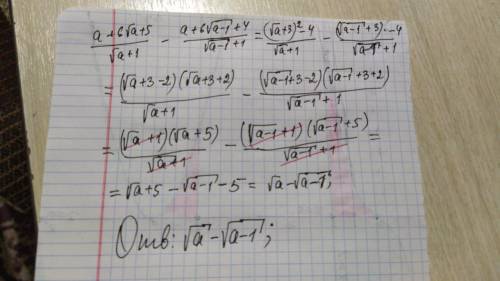 (a+6√a+5)/(√a+1) - (a+6√(a-1)+4)/(√(a-1)+1) = ((√a+3)²-4)/(√a+1) - ((√(a-1)+3)²-4)/(√(a-1)+1)
= ((√a+3-2)(√a+3+2))/(√a+1) - ((√(a-1)+3-2)(√(a-1)+3+2))/(√(a-1)+1)
= ((√a+1)(√a+5))/(√a+1) - ((√(a-1)+1)(√(a-1)+5))/(√(a-1)+1) =
= √a+5 - √(a-1) - 5 = √a - √(a-1);
Отв: √a - √(a-1);